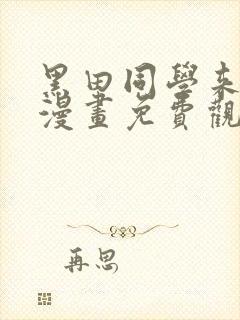 黑田同學來
漫畫免費觀
再思